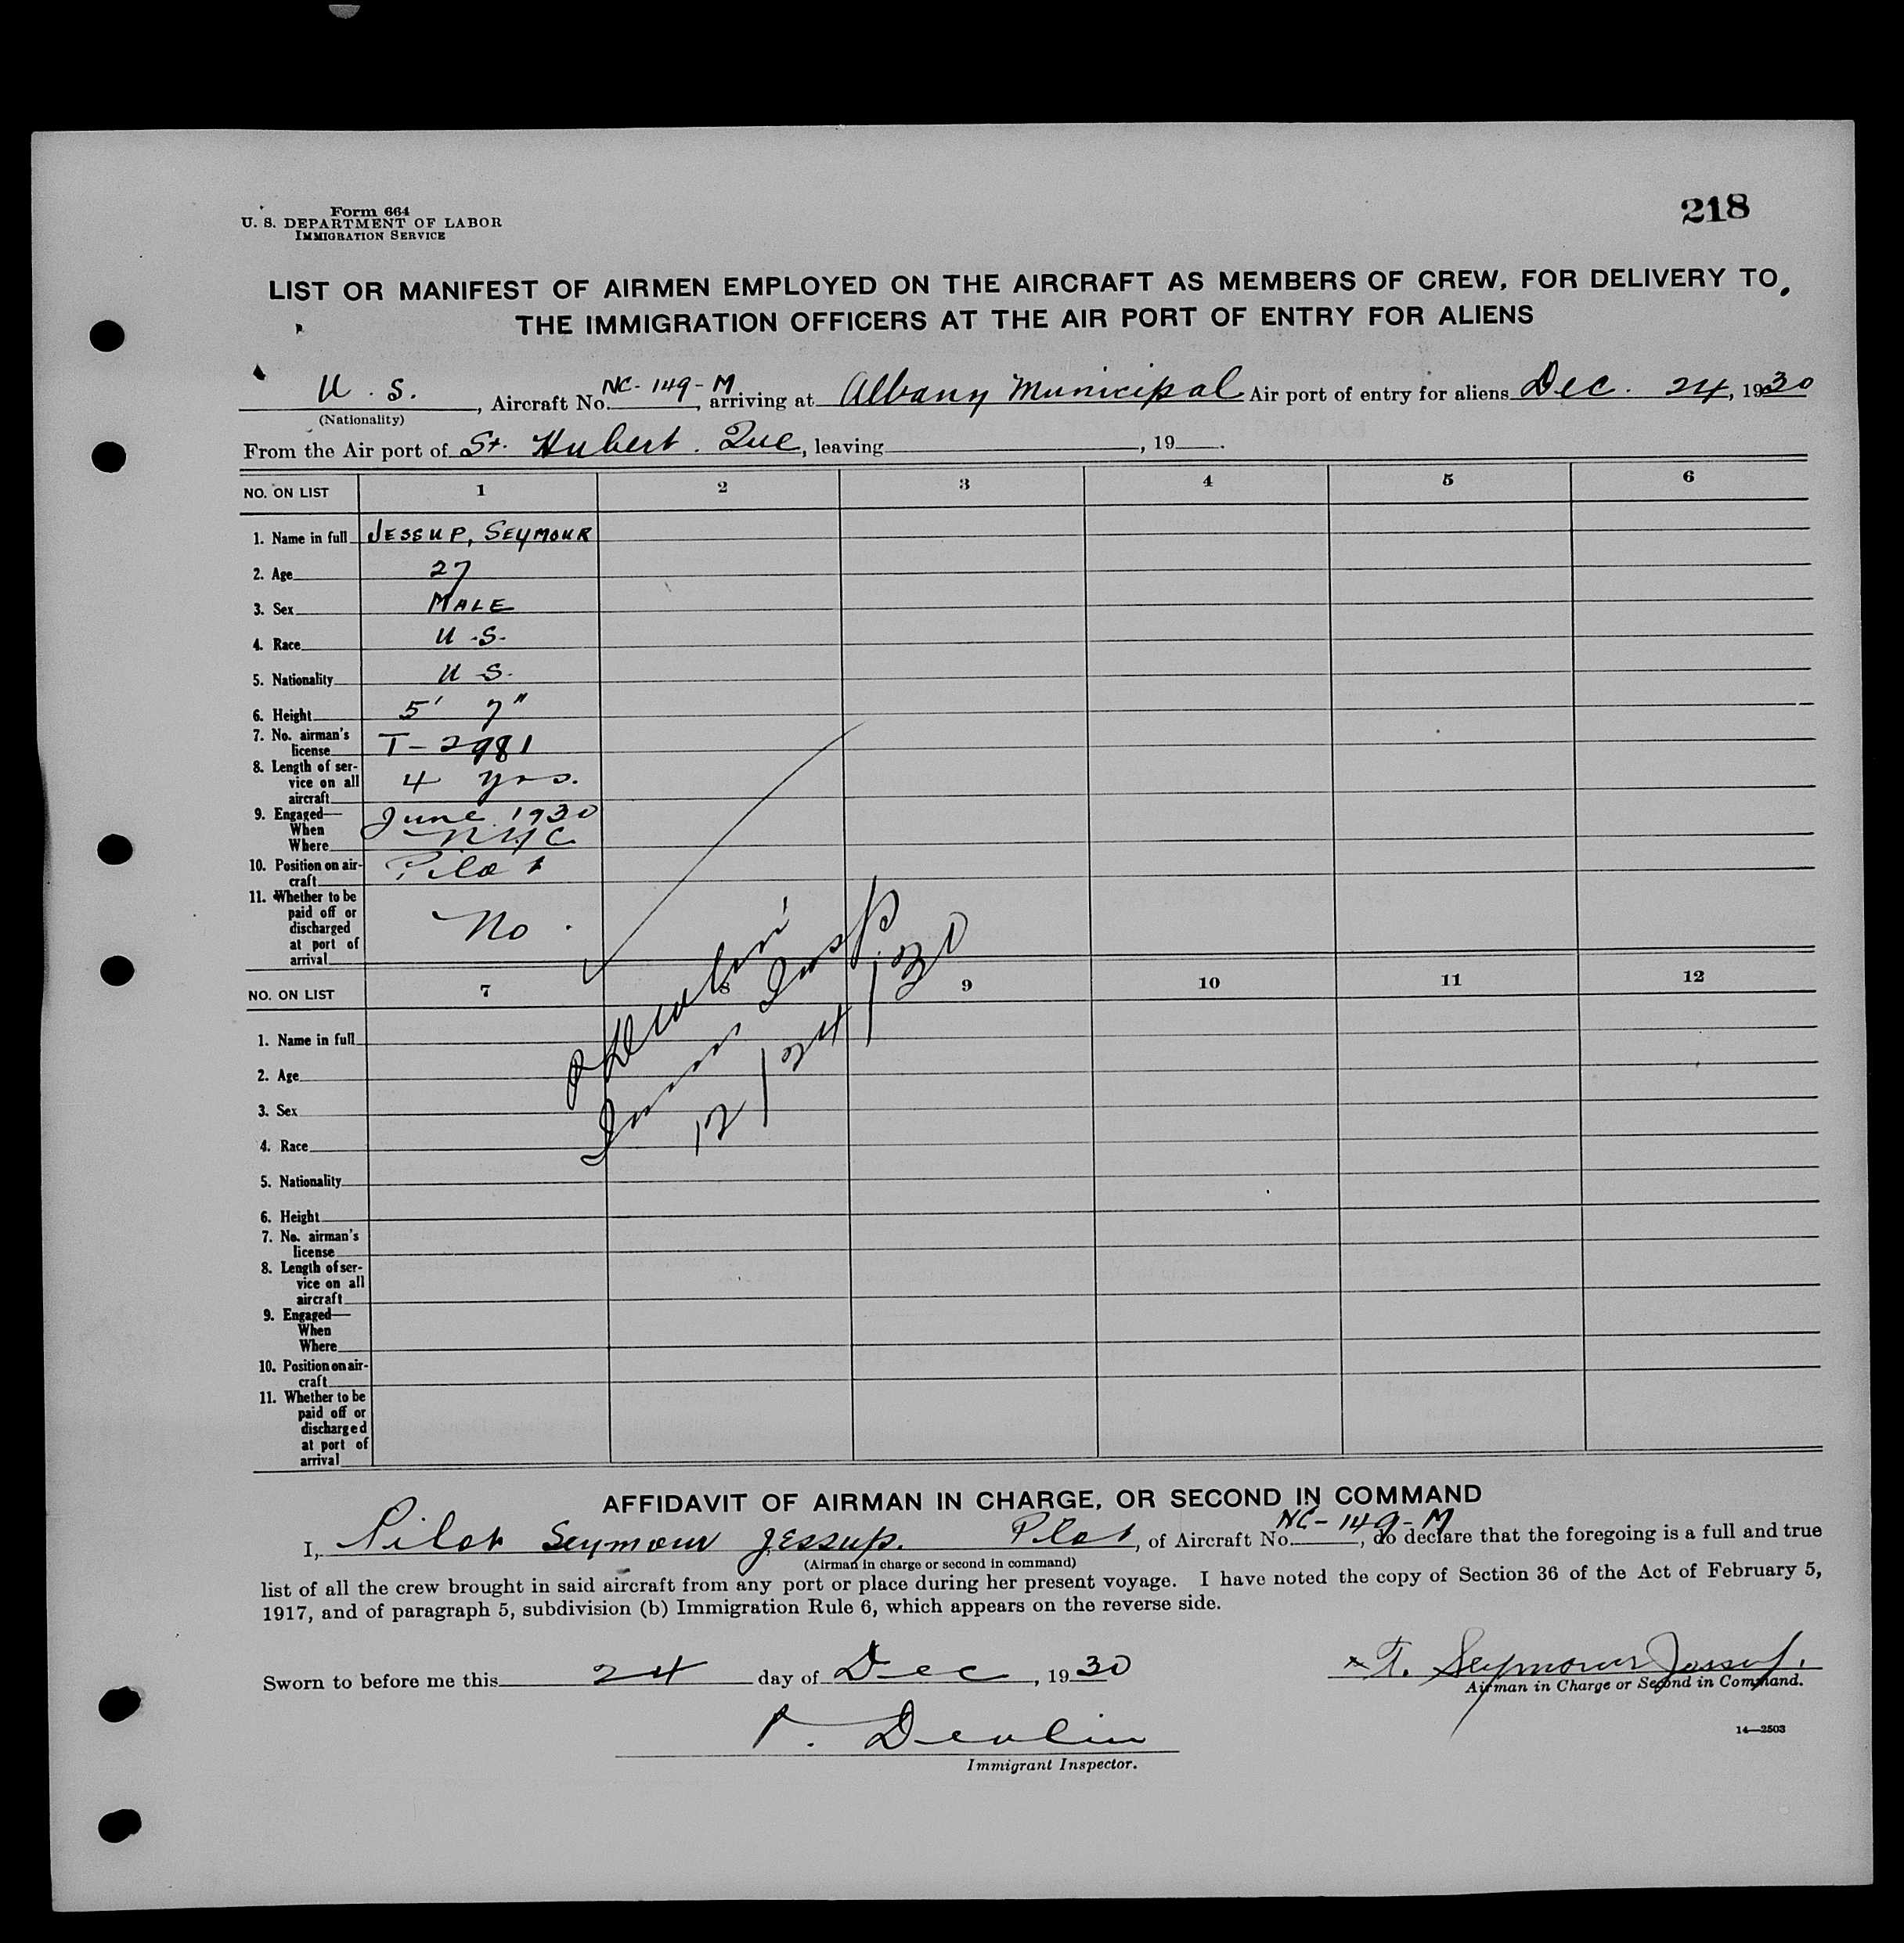 Form 664
U. S. DEPARTMENT OF LABOR
IMMIGRATION SERVICE
218
LIST OR MANIFEST OF AIRMEN EMPLOYED ON THE AIRCRAFT AS MEMBERS OF CREW, FOR DELIVERY TO
THE IMMIGRATION OFFICERS AT THE AIR PORT OF ENTRY FOR ALIENS
U. S., Aircraft No. NC-149-M, arriving at Albany Municipal Air port of entry for aliens Dec. 24, 1930
(Nationality)
From the Air port of St. Hubert. Que, leaving, 19.
NO. ON LIST 1 2 3 4 5 6
1. Name in full JESSUP, SEYMOUR
2. Age 27
3. Sex MALE
4. Race U.S.
5. Nationality U.S.
6. Height 5' 7"
7. No. airman's
license T-2981
8. Length of ser-
vice on all
aircraft 4 yrs.
9. Engaged—
When June 1930
Where NYC
10. Position on air-
craft Pilot
11. Whether to be
paid off or
discharged
at port of
arrival No.
P Devlin
Imm Insp
12/24/30
NO. ON LIST 7 8 9 10 11 12
1. Name in full
2. Age
3. Sex
4. Race
5. Nationality
6. Height
7. No. airman's
license
8. Length of ser-
vice on all
aircraft
9. Engaged—
When
Where
10. Position on air-
craft
11. Whether to be
paid off or
discharged
at port of
arrival
AFFIDAVIT OF AIRMAN IN CHARGE, OR SECOND IN COMMAND
I, Pilot Seymour Jessup. Pilot, of Aircraft No. NC-149-M, do declare that the foregoing is a full and true
(Airman in charge or second in command)
list of all the crew brought in said aircraft from any port or place during her present voyage. I have noted the copy of Section 36 of the Act of February 5,
1917, and of paragraph 5, subdivision (b) Immigration Rule 6, which appears on the reverse side.
Sworn to before me this 24 day of Dec, 1930
x T. Seymour Jessup.
Airman in Charge or Second in Command.
P. Devlin
Immigrant Inspector.
14—2503